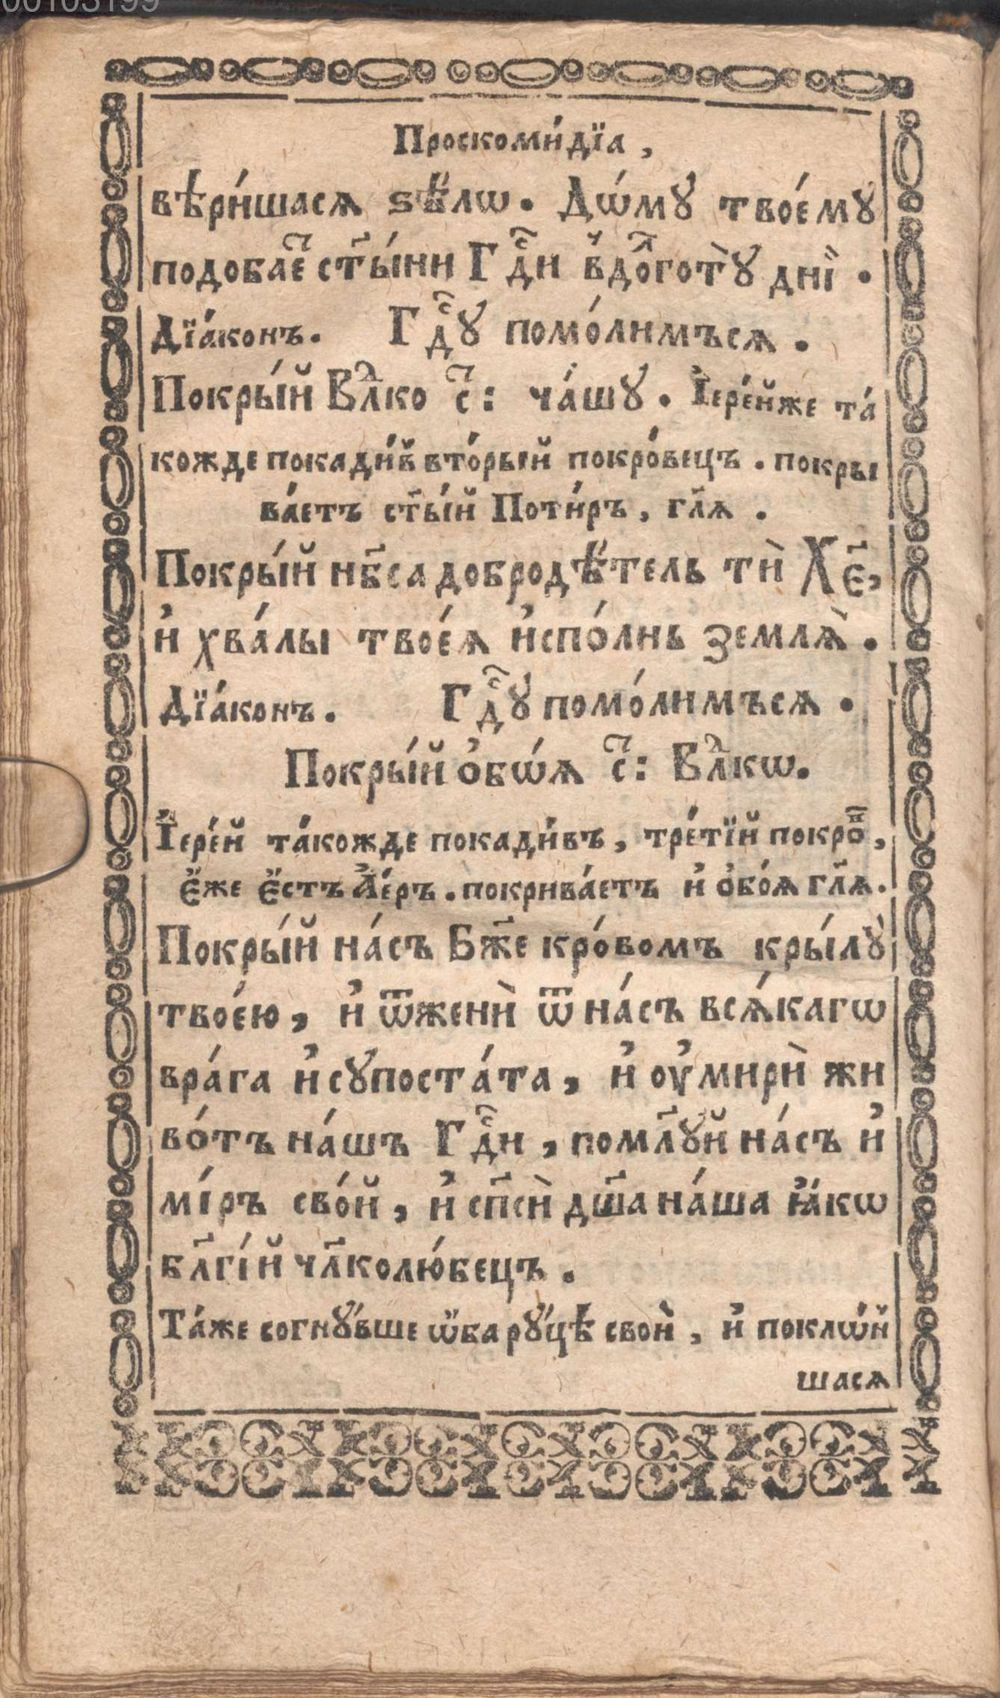 00103199
Проскоми́дїа ,
вѣри́шасѧ ѕѣ́лѡ . Дѡ́мꙋ твоє́мꙋ
подобаеⷭ҇ ст҃ы́ни Гдⷭ҇и в̾доⷧготꙋ̀ днїй .
Дїа́конъ . Гдⷭ҇ꙋ помо́лимъсѧ .
Покры́й Влⷣко сⷭ҇ : ча́шꙋ . І҆ере́йже та́
кожде покади́в̾ вто́рый покро́вецъ . покры
ва́етъ ст҃ы́й Поти́ръ , гл҃ѧ .
Покры́й нб҃са добродѣ́тель тѝ Хе҃ ,
и҆ хва́лы твоеѧ́ и҆спо́лнь землѧ̀ .
Дїа́конъ . Гдⷭ҇ꙋ помо́лимъсѧ .
Покры́й о҆бѡ́ѧ сⷭ҇ : Влⷣкѡ .
І҆ере́й та́кожде покади́въ , тре́тїй покроⷡ ,
є҆́же є҆́стъ А҆е́ръ . покрива́етъ и҆ о҆бо́ѧ гл҃ѧ .
Покры́й на́съ Бж҃е кро́вомъ крылꙋ̀
твоє́ю , и҆ ѿженѝ ѿ на́съ всѧ́кагѡ
вра́га и҆ сꙋпоста́та , и҆ оу҆мирѝ жи
во́тъ на́шъ Гдⷭ҇и , помл҃ꙋй на́съ и҆
мі́ръ сво́й , и҆ сп҃сѝ дш҃а на́ша ꙗ҆́кѡ
бл҃гі́й чл҃колю́бецъ .
Та́же согнꙋ́вше ѡ҆́ба рꙋ́цѣ своѝ , и҆ поклѡ́н̾
шасѧ